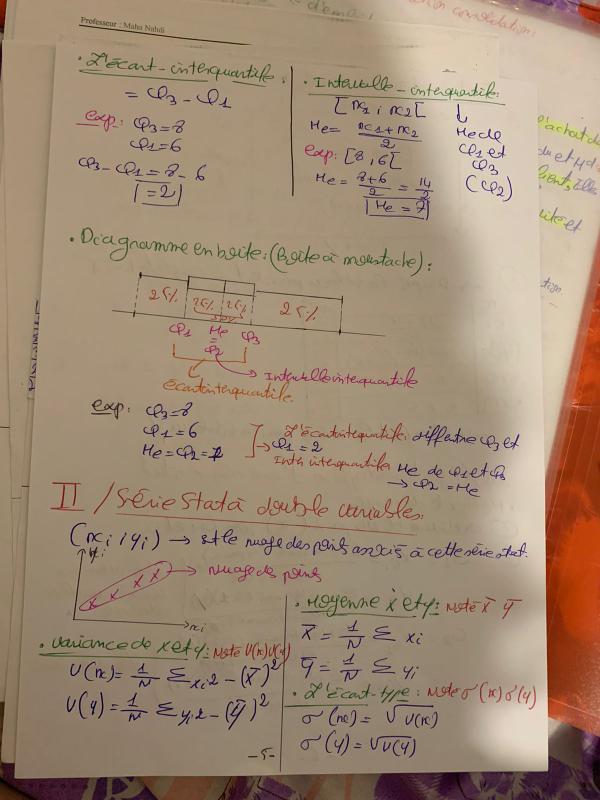 Professeur : Maha Nahdi
• L'écart-interquartile :
= Q3 - Q1
exp: Q3=8
Q1=6
Q3-Q1=8-6
=2
• Intervalle-interquartile:
[x1 ; x2[
Me= x1+x2/2
exp: [8,6[
Me= 8+6/2 = 14/2
Me=7
Me de
Q1 et
Q3
(Q2)
• Diagramme en boite: (Boite à moustache):
25% 25% 25% 25%
50%
Q1 Me Q3
=
Q2
Intervalle interquartile
écart interquartile
exp: Q3=8
Q1=6
Me=Q2=7
L'écart interquartile: différence Q3 et
Q1=2
Inth interquartile: Me de Q1 et Q3
→ Q2=Me
II / Série Stat à double variables:
(xi , yi) → est le nuage des points associés à cette série stat.
yi
Nuage des points
xi
• Moyenne x et y: Noté x̄ ȳ
x̄ = 1/N Σ xi
ȳ = 1/N Σ yi
• Variance de x et y: Noté V(x) V(y)
V(x)= 1/N Σ xi2 - (x̄)2
V(y)= 1/N Σ yi2 - (ȳ)2
• L'écart-type: Noté σ(x) σ(y)
σ(x) = √V(x)
σ(y) = √V(y)
-5-